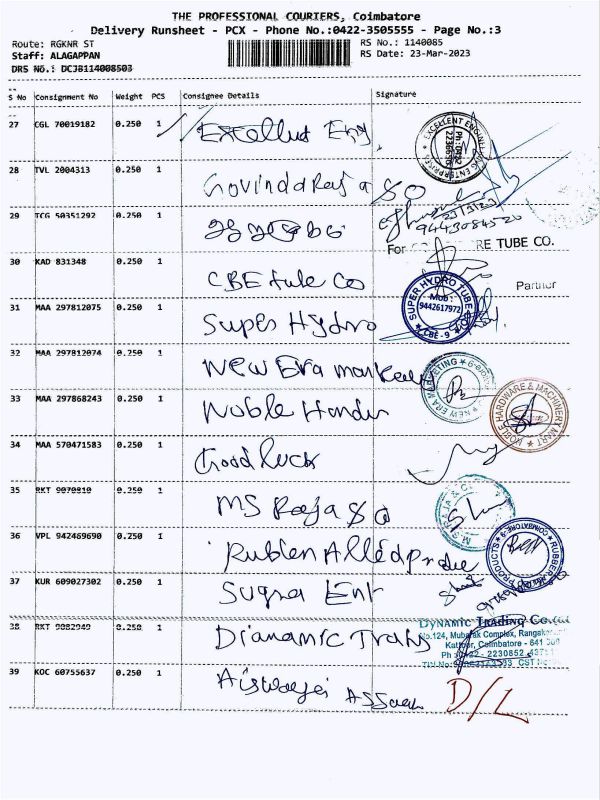 THE PROFESSIONAL COURIERS, Coimbatore
Delivery Runsheet - PCX - Phone No.:0422-3505555 - Page No.:3
Route: RGKNR ST
RS No.: 1140085
Staff: ALAGAPPAN
RS Date: 23-Mar-2023
DRS No.: DCJB114008503
S No Consignment No Weight PCS Consignee Details Signature
27 CGL 70019182 0.250 1 Excellus Eng.
EXCELLENT ENGINEERING ENTERPRISES
28 TVL 2004313 0.250 1 Govindaraja
29 TCG 50351292 0.250 1
9443084520
For TUBE CO.
30 KAD 831348 0.250 1 CBE tube Co
Partner
31 MAA 297812075 0.250 1 Super Hydro
SUPER HYDRO TUBE
Mob:
9442617972
CBE - 9
32 MAA 297812074 0.250 1 New Era
NEW ERA MARKETING
33 MAA 297868243 0.250 1 Noble Hardw
NOBLE HARDWARE & MACHINERY MART
34 MAA 570471583 0.250 1 Good luck
35 RKT 9070810 0.250 1 MS Raja
M.S. RAJA & CO
36 VPL 942469690 0.250 1 Rubben Allied
RUBBER PRODUCTS COIMBATORE-9
37 KUR 609027302 0.250 1 Sugna Ent
38 RKT 9082949 0.250 1 Dianamic
DYNAMIC TRADING CO.
No.124, Mubarak Complex,
Coimbatore - 641
39 KOC 60755637 0.250 1
D/L